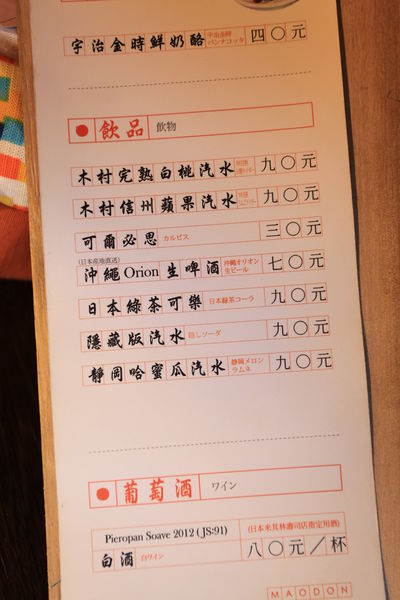 宇治金時鮮奶酪 宇治金時パンナコッタ 四〇元
飲品 飲物
木村完熟白桃汽水 九〇元
木村信州蘋果汽水 九〇元
可爾必思 カルピス 三〇元
(日本産地直送)
沖繩Orion生啤酒 沖縄オリオン生ビール 七〇元
日本綠茶可樂 日本緑茶コーラ 九〇元
隱藏版汽水 隠しソーダ 九〇元
靜岡哈蜜瓜汽水 静岡メロンラムネ 九〇元
葡萄酒 ワイン
Pieropan Soave 2012 ( JS:91) (日本米其林壽司店指定用酒)
白酒 白ワイン 八〇元／杯
MAODON